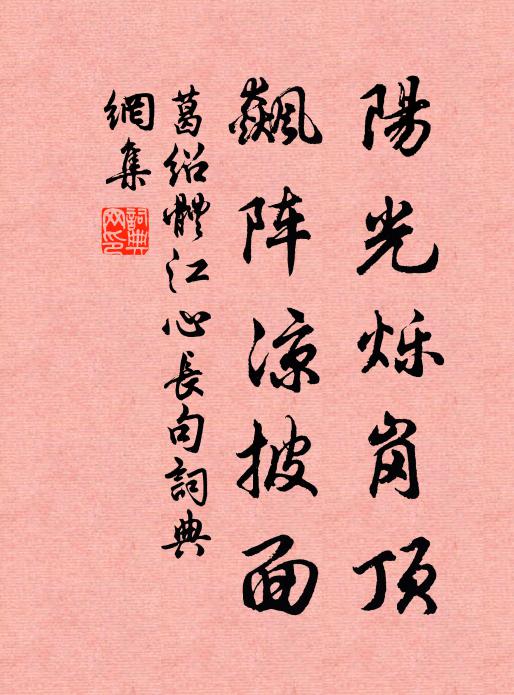 陽光烁崗顶
飙阵凉披面
葛绍體江心長句詞典
網集
詞典網印